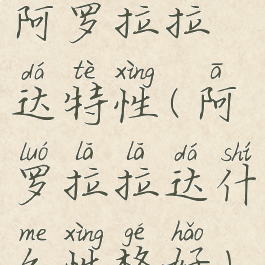 阿罗拉拉
dá tè xìng ā
达特性(阿
luó lā lā dá shí
罗拉拉达什
me xìng gé hǎo
么性格好)